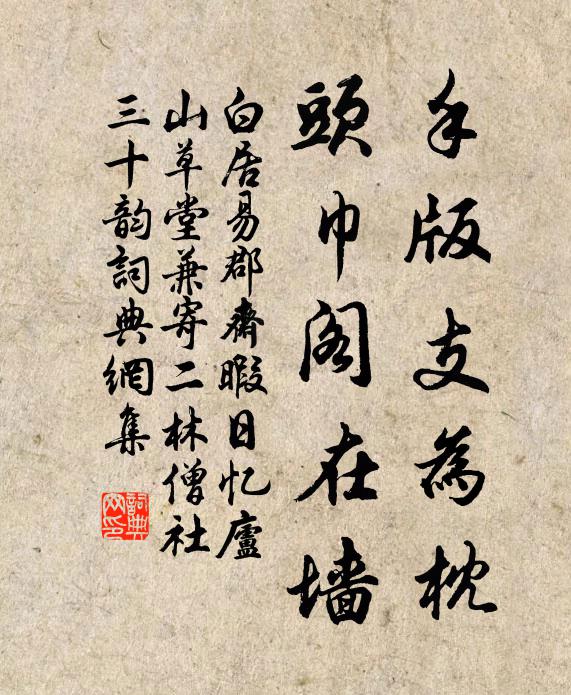 手版支為枕
頭巾閣在墻
白居易郡齋暇日忆廬
山草堂兼寄二林僧社
三十韵詞典網集
詞典
网印